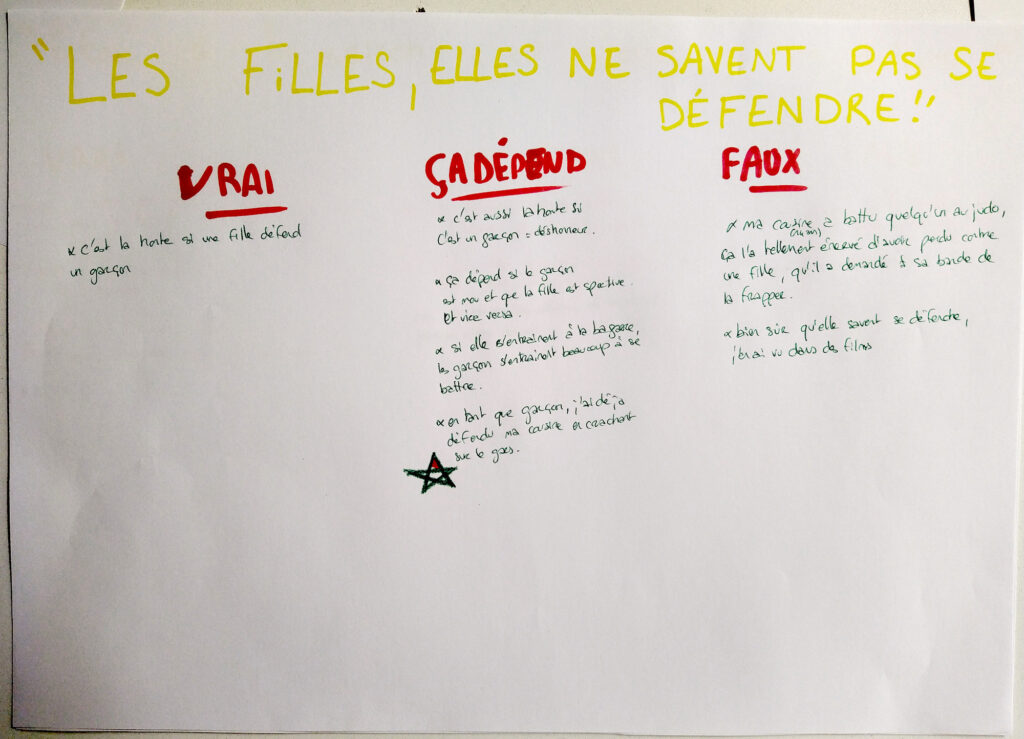 "LES FiLLES, ELLES NE SAVENT PAS SE
DÉFENDRE!"
VRAI
* c'est la honte si une fille défend
un garçon
ÇA DÉPEND
* c'est aussi la honte si
c'est un garçon = déshonneur.
* ça dépend si le garçon
est mou et que la fille est sportive.
Et vice versa.
* si elle s'entrainent à la bagarre,
les garçon s'entrainent beaucoup à se
battre.
* en tant que garçon, j'ai déjà
défendu ma cousine en crachant
sur le gars.
FAUX
* ma cousine a battu quelqu'un au judo,
ça l'a tellement énervé d'avoir perdu contre
une fille, qu'il a demandé à sa bande de
la frapper.
* bien sûr qu'elle savent se défendre,
j'en ai vu dans des films